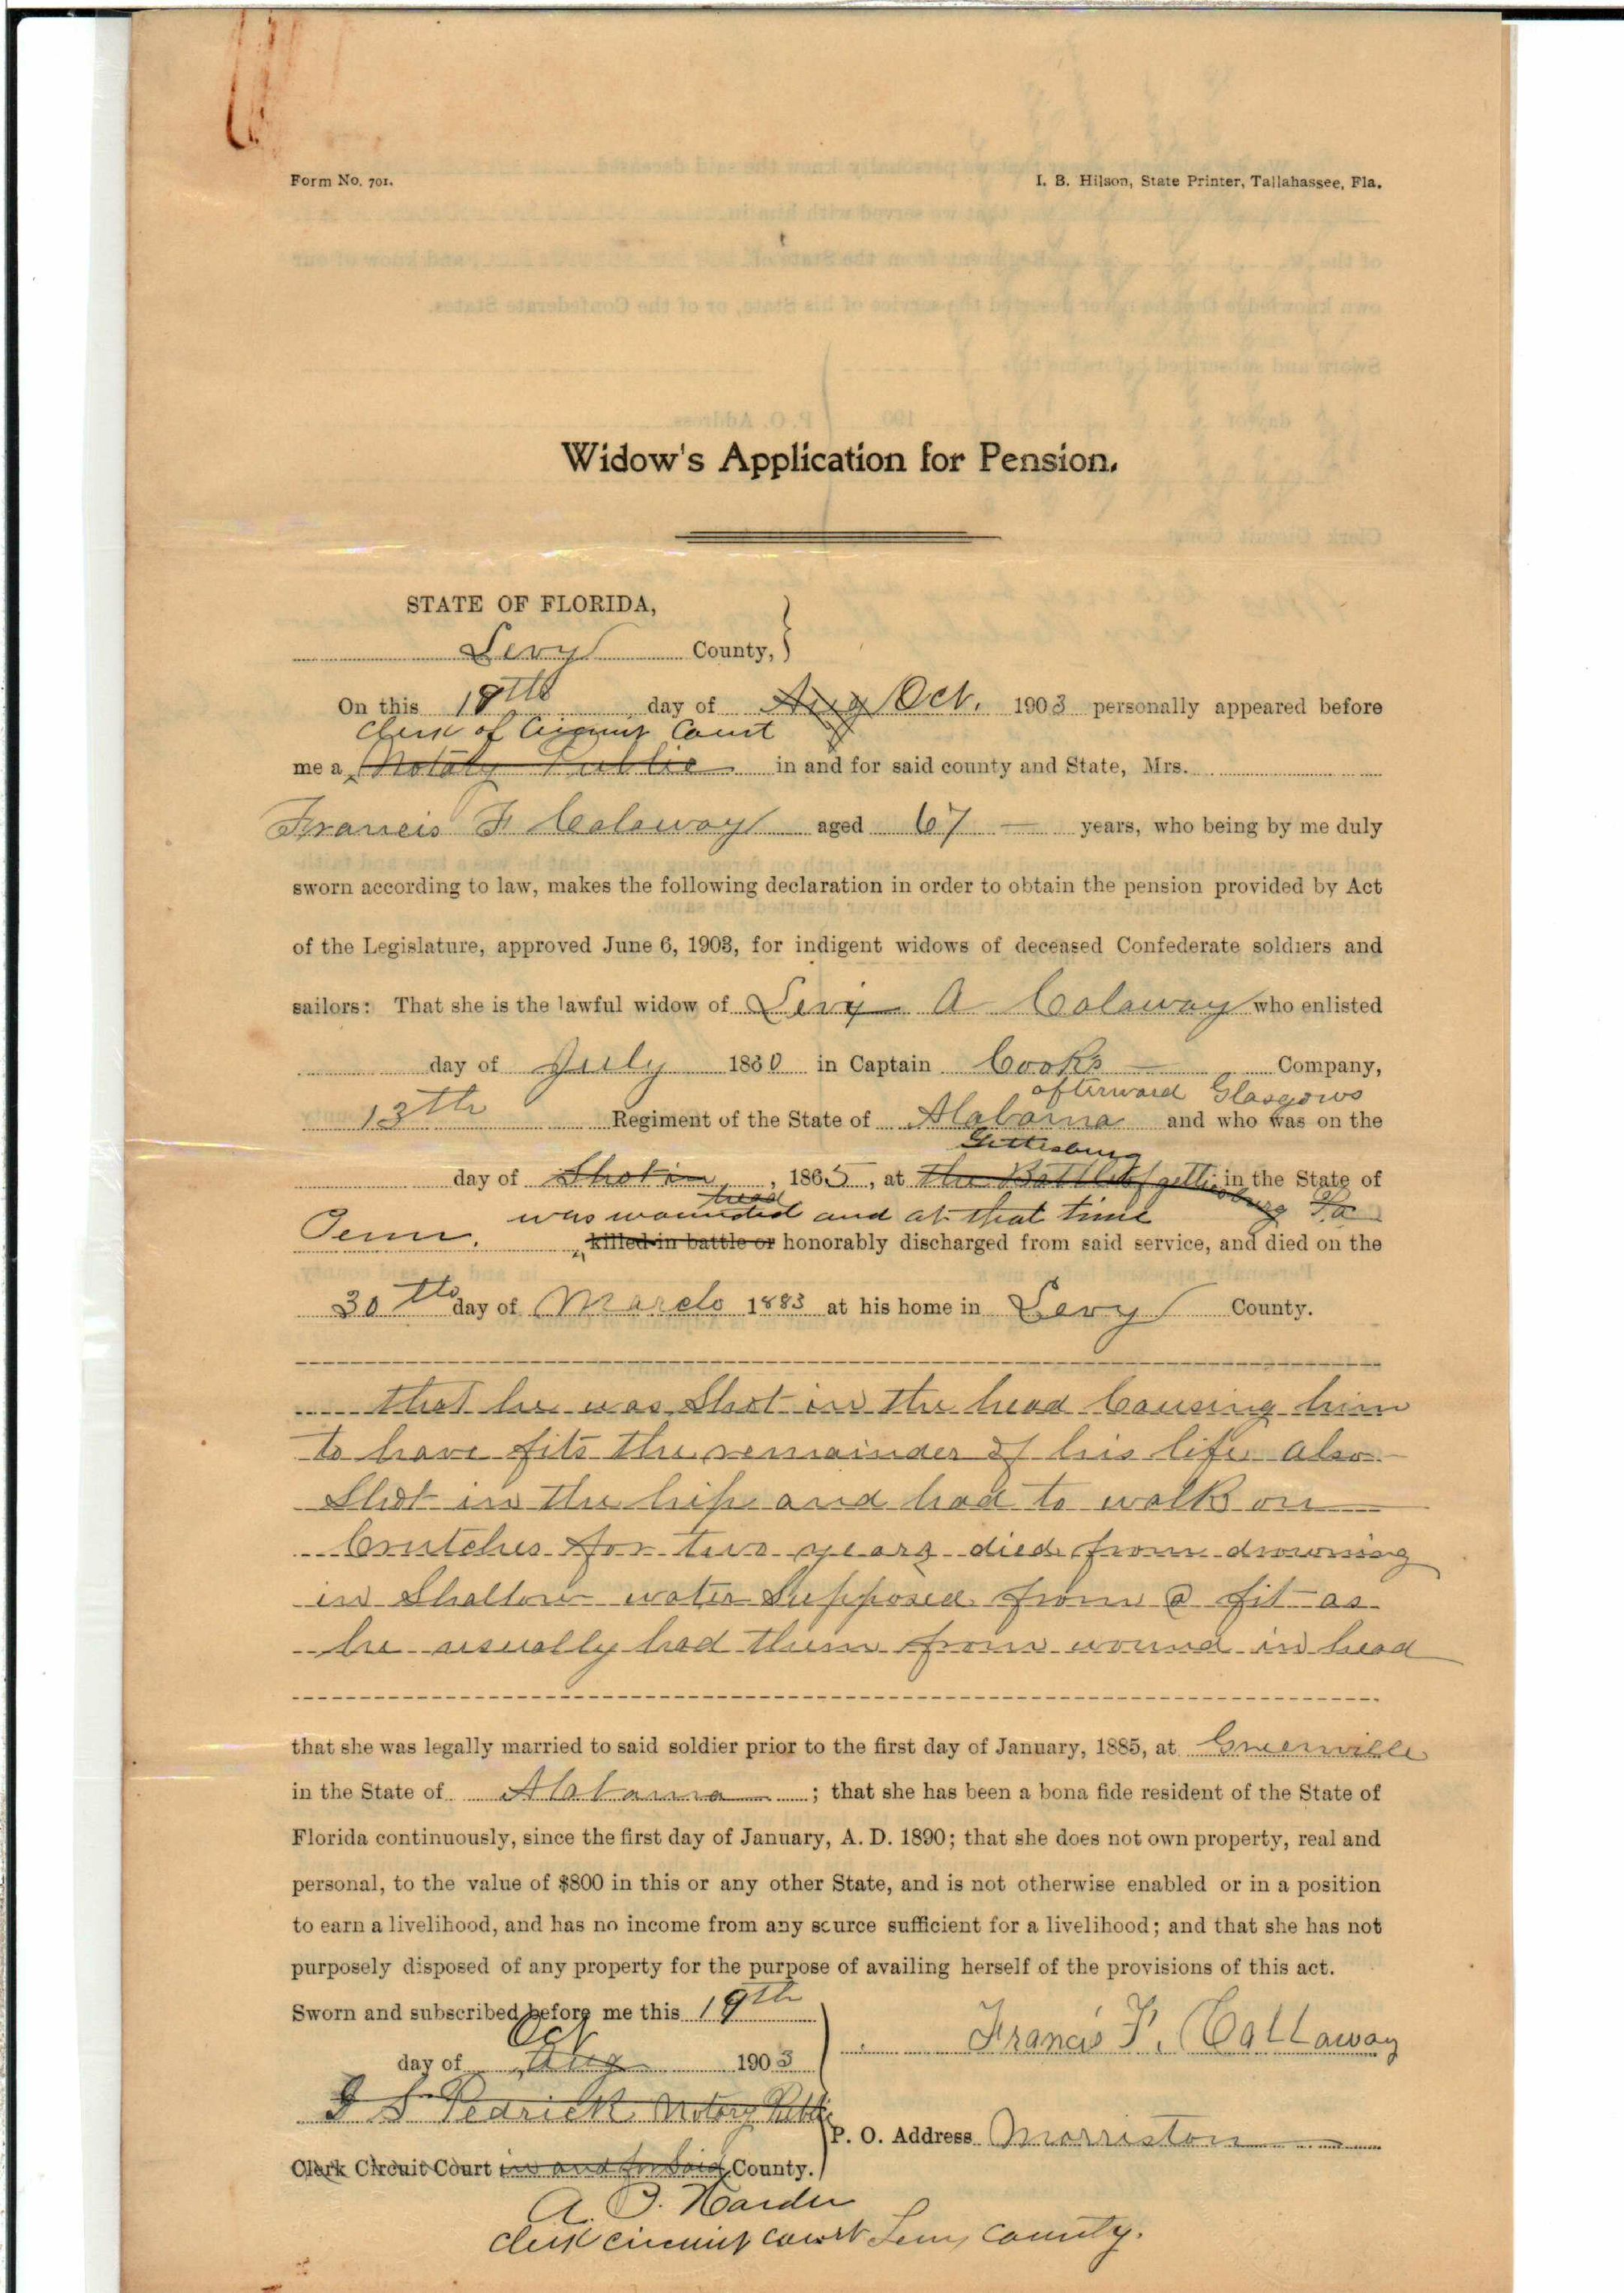 Form No. 701.
I. B. Hilson, State Printer, Tallahassee, Fla.
Widow's Application for Pension.
STATE OF FLORIDA,
Levy County,
On this 19th day of Aug Oct. 1903 personally appeared before
Clerk of Circuit Court
me a Notary Public in and for said county and State, Mrs.
Francis F Calaway aged 67 — years, who being by me duly
sworn according to law, makes the following declaration in order to obtain the pension provided by Act
of the Legislature, approved June 6, 1903, for indigent widows of deceased Confederate soldiers and
sailors: That she is the lawful widow of Levy A Calaway who enlisted
day of July 1860 in Captain Cooks — Company,
afterward Glasgows
13th Regiment of the State of Alabama and who was on the
Gettesburg
day of Shot in, 1865, at the Battle of gettiesburg in the State of
head Pa
was wounded and at that time
Penn. killed in battle or honorably discharged from said service, and died on the
30th day of March 1883 at his home in Levy County.
that he was Shot in the head Causing him
to have fits the remainder of his life also
Shot in the hip and had to walk on
Crutches for two years died from drowning
in Shallow water Supposed from a fit as
he usually had them from wound in head
that she was legally married to said soldier prior to the first day of January, 1885, at Greenville
in the State of Alabama ; that she has been a bona fide resident of the State of
Florida continuously, since the first day of January, A. D. 1890; that she does not own property, real and
personal, to the value of $800 in this or any other State, and is not otherwise enabled or in a position
to earn a livelihood, and has no income from any source sufficient for a livelihood; and that she has not
purposely disposed of any property for the purpose of availing herself of the provisions of this act.
Sworn and subscribed before me this 19th
Oct
day of Aug 1903
Francis F. Callaway
S Pedrick Notary Public
P. O. Address Morriston
Clerk Circuit Court in and for Said County.
A. Hardee
Clerk circuit court Levy County.